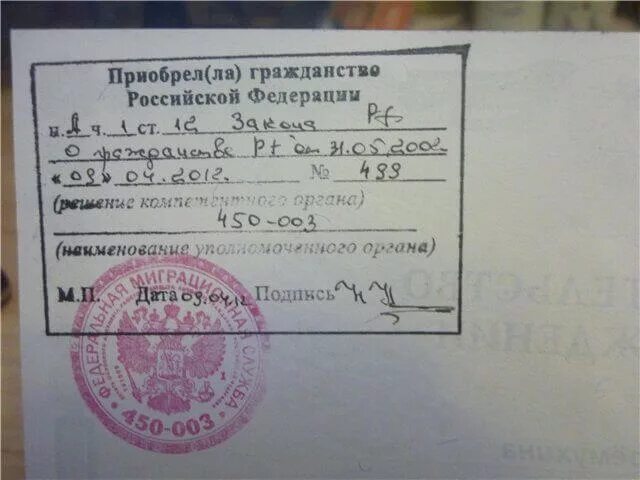 Приобрел(ла) гражданство
Российской Федерации
п. А ч. 1 ст. 12 Закона Рf
О гражданстве Рf от 31.05.2002
«09» 04.2012. № 499
(решение компетентного органа)
450-003
(наименование уполномоченного органа)
М.П. Дата 09.04.12 Подпись
ФЕДЕРАЛЬНАЯ МИГРАЦИОННАЯ СЛУЖБА
* 450-003 *